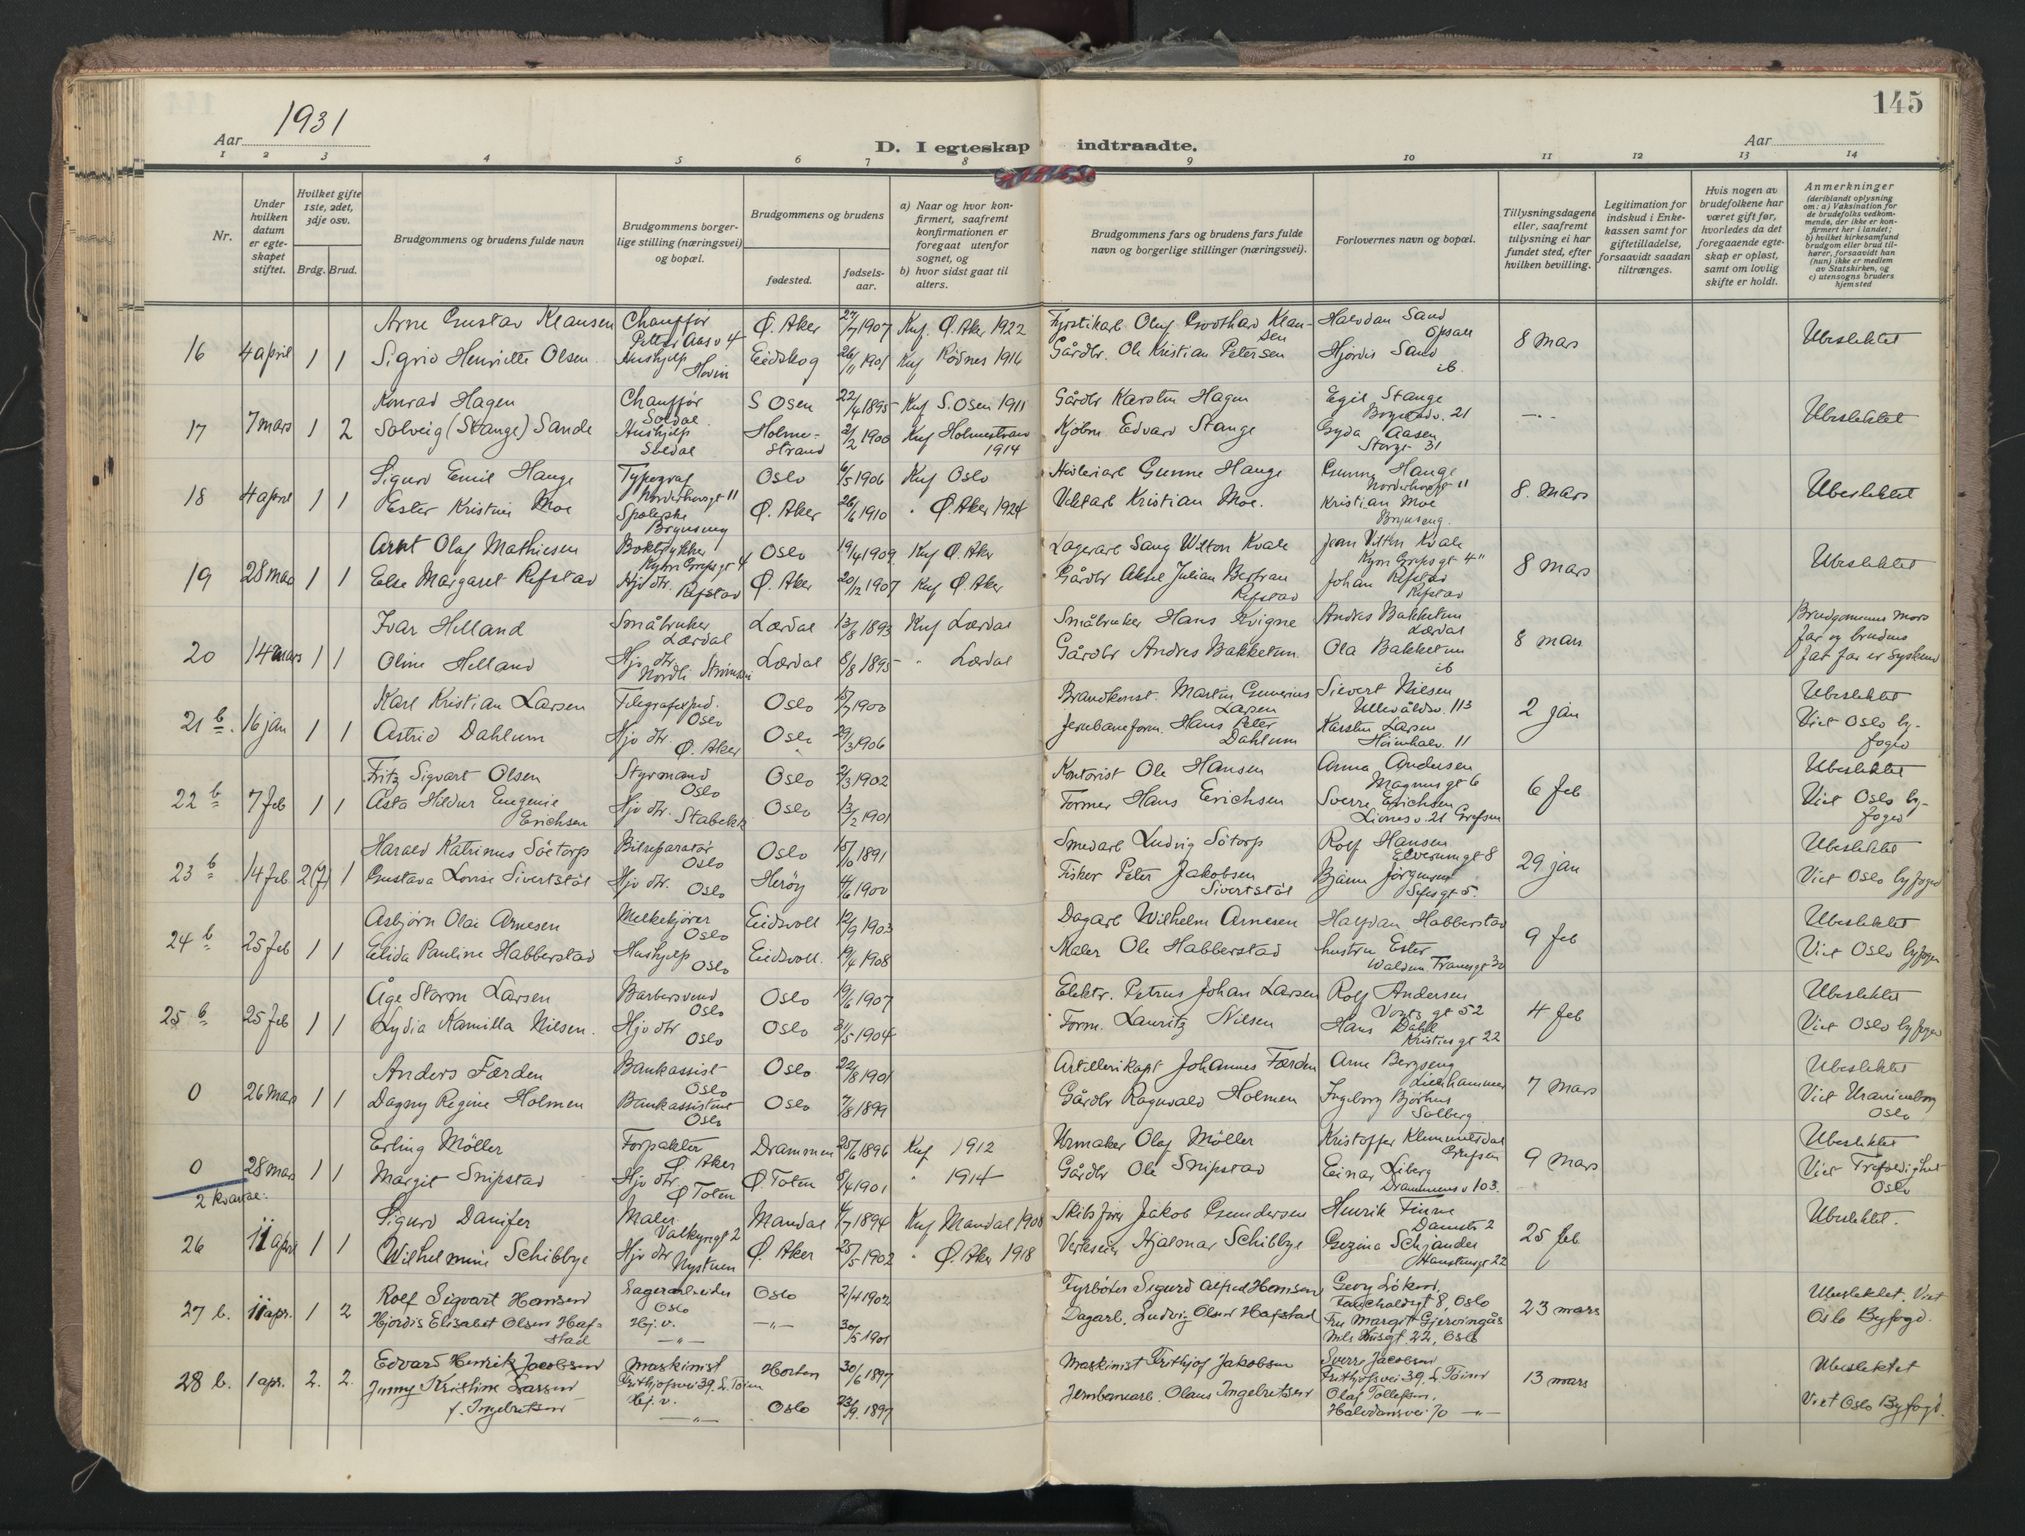 145
1931
Aar
D. I egteskap indtraadte.
Aar
1 2 3 4 5 6 7 8 9 10 11 12 13 14
Nr.
Under hvilken datum er egteskapet stiftet.
Hvilket gifte 1ste, 2det, 3dje osv.
Brdg. Brud.
Brudgommens og brudens fulde navn
Brudgommens borgerlige stilling (næringsvei) og bopæl.
Brudgommens og brudens
fødested.
fødselsaar.
a) Naar og hvor konfirmert, saafremt konfirmationen er foregaat utenfor sognet, og
b) hvor sidst gaat til alters.
Brudgommens fars og brudens fars fulde navn og borgerlige stillinger (næringsvei).
Forlovernes navn og bopæl.
Tillysningsdagene eller, saafremt tullysning ei har fundet sted, efter hvilken bevilling.
Legitimation for indskud i Enkekassen samt for giftetilladelse, forsaavidt saadan tiltrænges.
Hvis nogen av brudefolkene har været gift før, hvorledes da det foregaaende egteskap er opløst, samt om lovlig skifte er holdt.
Anmerkninger (deriblandt oplysning om: a) Vaksination for de brudefolks vedkommende, der ikke er konfirmert her i landet; b) hvilket kirkesamfund brudgom eller brud tilhører, forsaavidt han (hun) ikke er medlem av Statskirken, og c) utensogns bruders hjemsted
16 4 april 1 1 Arne Gustav Klausen Chauffør Petter Aas v 4 Ø. Aker 27/7 1907 Knf. Ø. Aker 1922 Olaf Gotthard Klausen Halvdan Sand Opsal 8 mars Ubeslektet
Sigrid Henriette Olsen Hushjelp Hovin Eidskog 26/11 1901 Knf Rödnes 1916 Gårdbr. Ole Kristian Petersen Hjördis Sand ib.
17 7 mars 1 2 Konrad Hagen Chauffør Soldal S Osen 22/4 1895 Knf S. Osen 1911 Gårdbr Karsten Hagen Egil Stange 21 —..— Ubeslektet
Solveig (Stange) Sande Hushjelp Holmestrand 2/2 1900 Knf Holmestrand 1914 Kjöbm Edvard Stange Gyda Aasen Storgt 31
18 4 april 1 1 Sigurd Emil Hauge Typograf Norderhovsgt 11 Oslo 6/5 1906 Knf Oslo Gunne Hauge Gunne Hauge Norderhovgt 11 8. mars Ubeslektet
Ester Kristine Moe Brynseng Ø. Aker 26/6 1910 " Ø. Aker 1924 Kristian Moe. Kristian Moe Brynseng.
19 28 mars 1 1 Arnt Olaf Mathiesen Boktrykker Oslo 19/4 1909 Knf Ø. Aker Lagerarb Wilton Kvale Wilton Kvale 8 mars Ubeslektet
Else Margaret Refstad Hjv dtr. Refstad Ø. Aker 20/12 1907 Knf Ø. Aker Gårdbr Aksel Julian Bertran Refstad Johan Refstad Refstad
20 14 mars 1 1 Ivar Helland Småbruker Lærdal Lærdal 13/8 1893 Knf Lærdal Småbruker Hans Kvigne Andres Bakketun Lærdal 8 mars Brudgommens mors far og brudens fars far er syskend
Oline Helland Hjv dtr. Lærdal 8/8 1895 " Lærdal Gårdbr Andres Bakketun Ola Bakketun ib
21 b. 16 jan 1 1 Karl Kristian Larsen Telegrafexped. Oslo Oslo 15/7 1900 Brandkonst. Martin Gunerius Larsen Sievert Nilsen Ullevåldsv. 113 2 jan Ubeslektet
Astrid Dahlum Hjv dtr. Ø. Aker Oslo 29/3 1906 Jernbaneform. Hans Peter Dahlum Karsten Larsen 11 Viet Oslo byfoged
22 b 7 feb 1 1 Fritz Sigvart Olsen Styrmand Oslo Oslo 2/3 1902 Kontorist Ole Hansen Anna Andersen Magnusgt 6 6 feb Ubeslektet
Asta Hildur Eugenie Erichsen Hjv dtr. Stabekk Oslo 13/2 1901 Former Hans Erichsen Sverre Erichsen 21 Grefsen Viet Oslo byfoged
23 b 14 feb 2(f) 1 Harald Katrinus Söetorp Bilreparatør Oslo Oslo 15/10 1891 Smedarb Ludvig Sötorp Rolf Hansen Elverumgt 8 29 jan Ubeslektet
Gustava Lovise Sivertstöl Hjv dtr. Oslo Heröy 4/6 1900 Fisker Peter Jakobsen Sivertstöl Bjarne Jörgensen 5. Viet Oslo byfoged
24 b 25 feb 1 1 Asbjörn Olai Arnesen Melkekjörer Oslo Eidsvoll 12/9 1903 Dagarb Wilhelm Arnesen Halfdan Habberstad 9 feb Ubeslektet
Elida Pauline Habberstad Hushjelp Oslo Eidsvoll. 19/4 1908 Maler Ole Habberstad hustru Ester Waldem. Tranesgt 30 Viet Oslo byfoged
25 b 25 feb 1 1 Åge Storm Larsen Barbersvend Oslo Oslo 19/6 1907 Elektr. Petrus Johan Larsen Rolf Andersen Vogtsgt 52 4 feb Ubeslektet
Lydia Kamilla Nilsen. Hjv dtr Oslo Oslo 31/5 1904 Form. Lauritz Nilsen Hans Dahl Kristiesgt 22 Viet Oslo byfoged
0 26 mars 1 1 Anders Færden Bankassist Oslo Oslo 22/8 1901 Artillerikapt Johannes Færden Arne Bergseng Lillehammer 7 mars Ubeslektet
Dagny Regine Holmen Bankassistent Oslo Oslo 7/8 1899 Gårdbr Ragnvald Holmen Ingeborg Björhus Solberg Viet Uranienborg Oslo
0 28 mars 1 1 Erling Möller Forpakter Ø Aker Drammen 25/6 1896 Knf 1912 Urmaker Olaf Möller Kristoffer Klemmetsdal Grefsen 9 mars Ubeslektet
Margit Snipstad Hjv dtr. Ø Toten Ø. Toten 8/4 1901 " 1914 Gårdbr Ole Snipstad Einar Liberg Drammensv 103. Viet Trefoldighet Oslo
2 kvartal:
26 11 april 1 1 Sigurd Danifer Maler Valkyrgt 2 Mandal 4/7 1894 Knf Mandal 1908 Skibsfører Jakob Gundersen Henrik Finne 2 25 feb Ubeslektet.
Wilhelmine Schibbye Hjv dtr Nystuen Ø. Aker 25/5 1902 " Ø. Aker 1918 Verkseier Hjalmar Schibbye Gezina Schjander 22
27 b. 11 apr. 1 2 Rolf Sigvart Hansen Lagerarbeider Oslo Oslo 2/4 1902 Fyrbøter Sigurd Alfred Hansen Georg Løken, 8, Oslo 23 mars Ubeslektet. Viet
Hjördis Elisabet Olsen Hafstad Hj. v. —"— —"— 30/5 1901 Dagarb. Ludvig Olsen Hafstad Fru Margit Gjervingås Nils Husgt 22, Oslo Oslo Byfogd.
28 b. 1 apr. 2. 2. Edvard Henrik Jacobsen Maskinist Frithjofsvei 39. L. Tåsen Horten 30/6 1897 Maskinist Frithjof Jakobsen Sverre Jacobsen Frithjofsvei 39. L. Tåsen 13 mars Ubeslektet
Jenny Kristine Larsen f. Ingebretsen Hj. v. —"— Oslo 23/9. 1897 Jernbanearb. Olaus Ingebretsen Olaf Tollefsen. Halvdansvei 10 —"— Viet Oslo Byfogd.